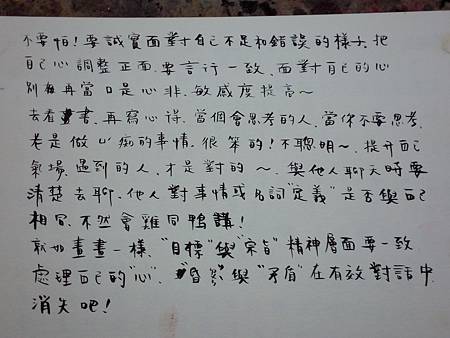 不要怕！要誠實面對自己不足和錯誤的樣子.把
自己心調整正面.要言行一致.面對自己的心
別再當口是心非.敏感度提高~
去看書.再寫心得.當個會思考的人.當你不要思考.
老是做 痴的事情.很笨的！不聰明~.提升自己
氣場.遇到的人.才是對的~.與他人聊天時要
清楚去聊.他人對事情或名詞"定義"是否與自己
相同.不然會雞同鴨講！
就如畫畫一樣."目標"與"宗旨"精神層面要一致
處理自己的"心"."與"矛盾"在有效對話中.
消失吧！